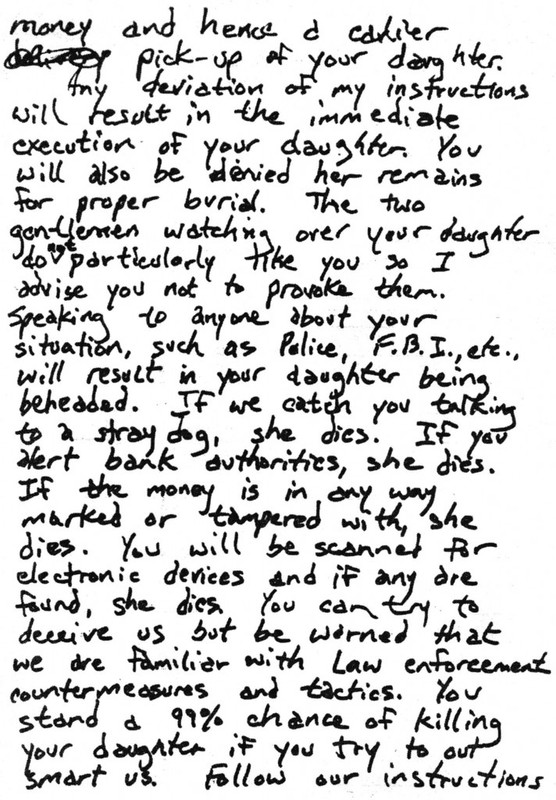 money and hence a earlier
pick-up of your daughter.
Any deviation of my instructions
will result in the immediate
execution of your daughter. You
will also be denied her remains
for proper burial. The two
gentlemen watching over your daughter
do not particularly like you so I
advise you not to provoke them.
Speaking to anyone about your
situation, such as Police, F.B.I., etc.,
will result in your daughter being
beheaded. If we catch you talking
to a stray dog, she dies. If you
alert bank authorities, she dies.
If the money is in any way
marked or tampered with, she
dies. You will be scanned for
electronic devices and if any are
found, she dies. You can try to
deceive us but be warned that
we are familiar with Law enforcement
countermeasures and tactics. You
stand a 99% chance of killing
your daughter if you try to out
smart us. Follow our instructions